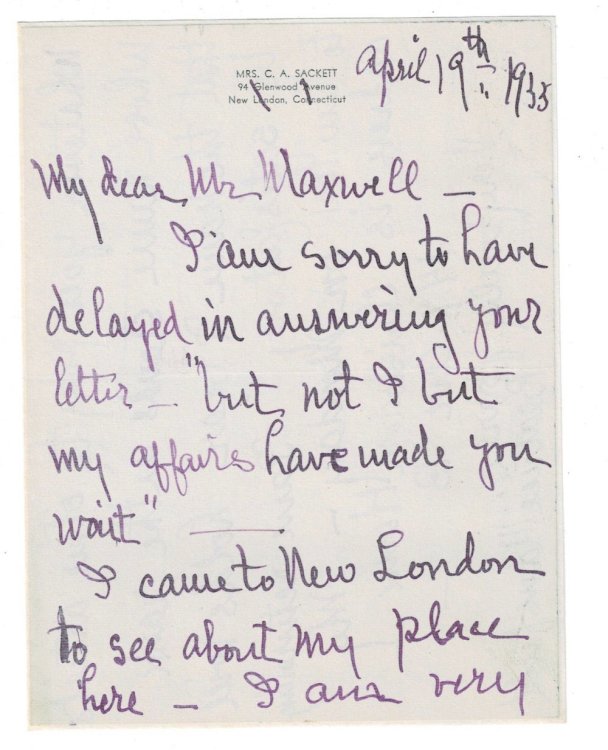 MRS. C. A. SACKETT
94 Glenwood Avenue
New London, Connecticut
April 19th 1935
My dear Mr Maxwell —
I am sorry to have
delayed in answering your
letter — "but not I but
my affairs have made you
wait" —
I came to New London
to see about my place
here — I am very